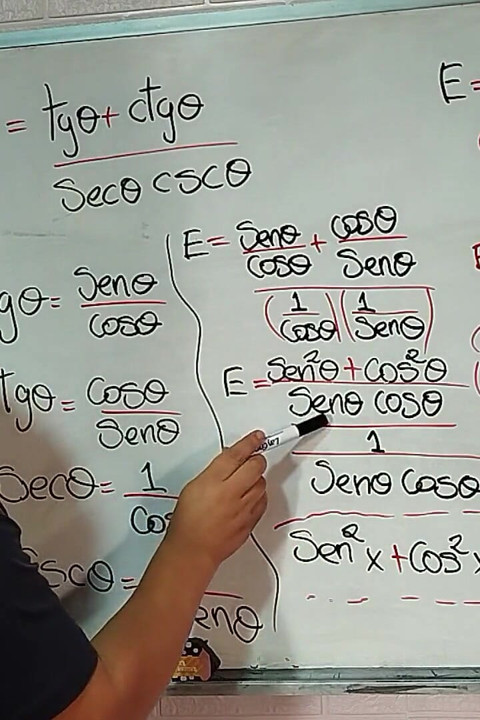 = tgθ + ctgθ
secθ cscθ
E=
gθ = Senθ
cosθ
tgθ = Cosθ
Senθ
Secθ = 1
Cos
scθ =
enθ
E = Senθ + cosθ
cosθ Senθ
(1) (1)
Cosθ Senθ
E = Sen²θ + Cos²θ
Senθ cosθ
1
Senθ Cosθ
Sen²x + Cos²x